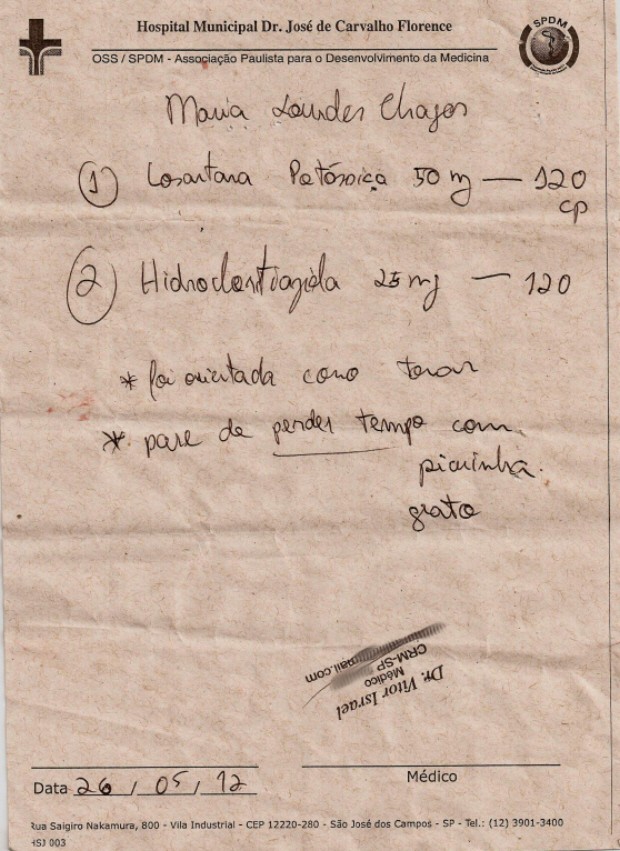 Hospital Municipal Dr. José de Carvalho Florence
SPDM
OSS / SPDM - Associação Paulista para o Desenvolvimento da Medicina
Maria Lourdes Chagas
1 Losartana Potássica 50 mg — 120
cp
2 Hidroclorotiazida 25 mg — 120
* foi orientada como tomar
* pare de perder tempo com
picuinha.
grato
Dr. Vitor Israel
Médico
CRM-SP
mail.com
Data 26 / 05 / 12
Médico
Rua Saigiro Nakamura, 800 - Vila Industrial - CEP 12220-280 - São José dos Campos - SP - Tel.: (12) 3901-3400
HSJ 003